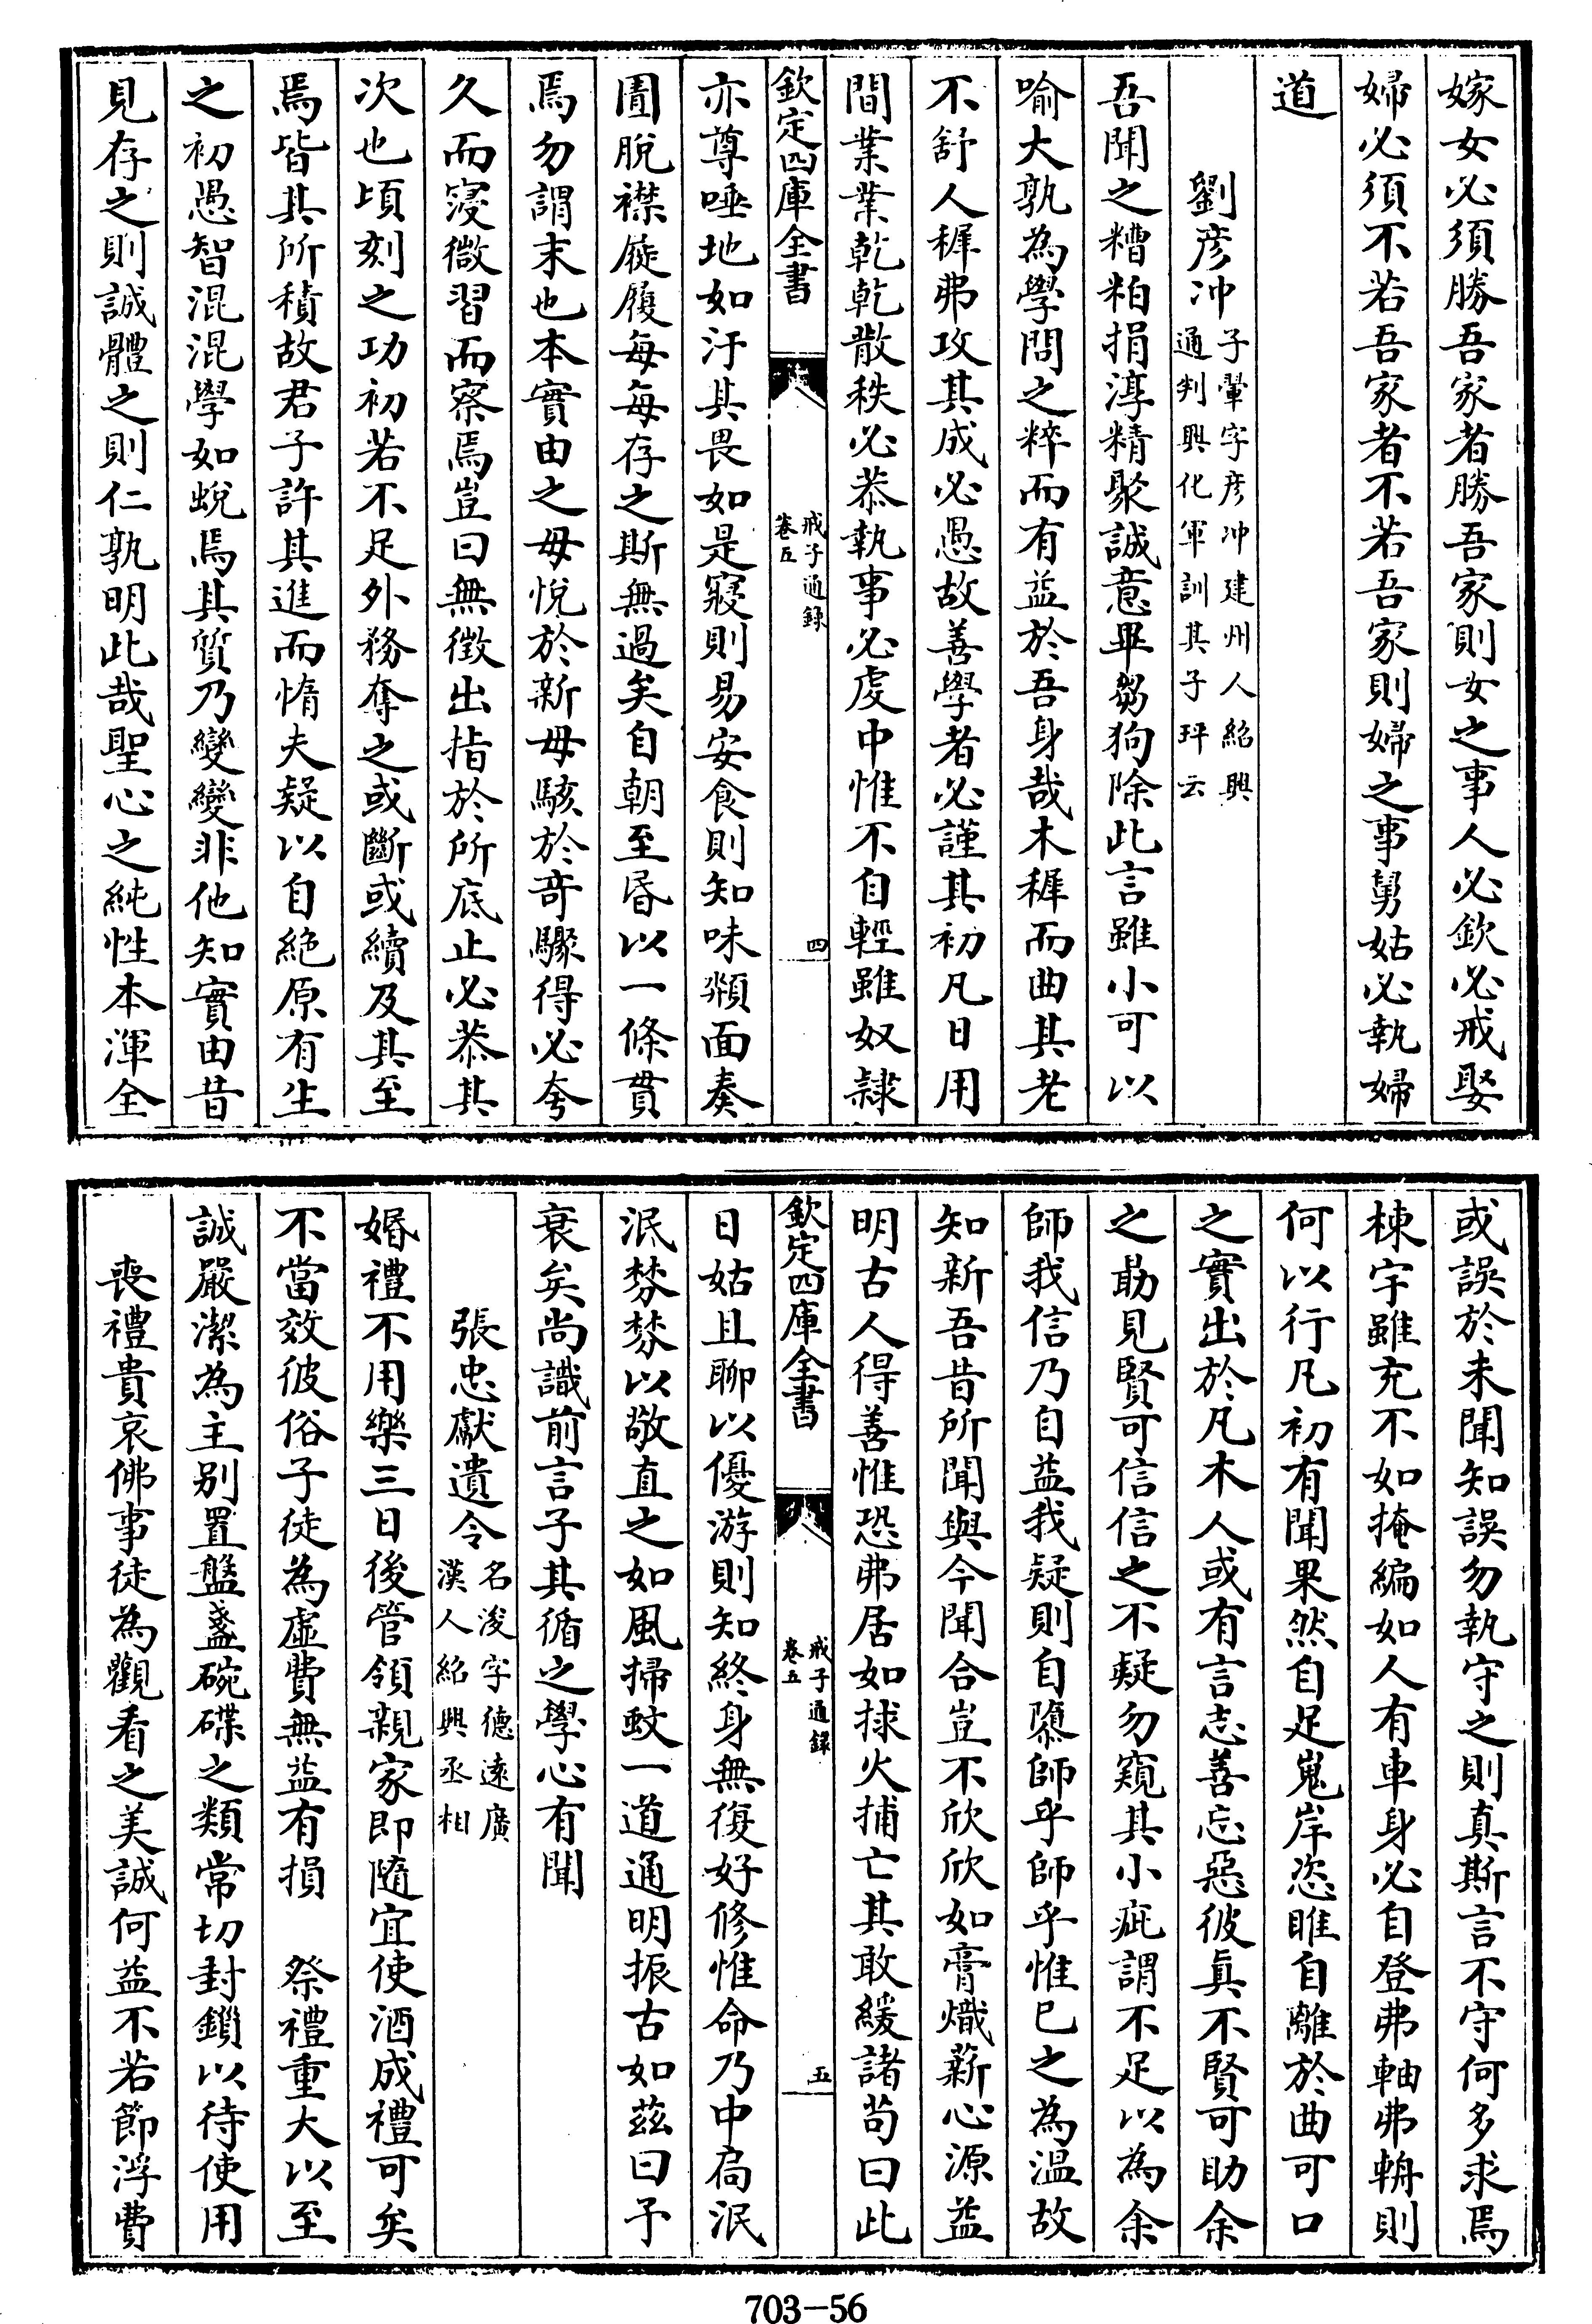 嫁女必須勝吾家者勝吾家則女之事人必欽必戒娶
婦必須不若吾家者不若吾家則婦之事舅姑必執婦
道
劉彦冲子翬字彦冲建州人紹興
通判興化軍訓其子玶云
吾聞之糟粕捐淳精聚誠意畢芻狗除此言雖小可以
喻大孰為學問之粹而有益於吾身哉木穉而曲其老
不舒人穉弗攻其成必愚故善學者必謹其初凡日用
間業業乾乾散秩必恭執事必虔中惟不自輕雖奴隷
欽定四庫全書
戒子通録
卷五
四
亦尊唾地如汙其畏如是寢則易安食則知味頮面奏
圊脫襟屣履每每存之斯無過矣自朝至昬以一條貫
焉勿謂末也本實由之毋悅於新毋駭於竒驟得必夸
久而寖微習而察焉豈曰無徵出指於所底止必恭其
次也頃刻之功初若不足外務奪之或斷或續及其至
焉皆其所積故君子許其進而惰夫疑以自絶原有生
之初愚智混混學如蛻焉其質乃變變非他知實由昔
見存之則誠體之則仁孰明此哉聖心之純性本渾全
或誤於未聞知誤勿執守之則真斯言不守何多求焉
棟宇雖充不如掩編如人有車身必自登弗軸弗輈則
何以行凡初有聞果然自足嵬岸恣睢自離於曲可口
之實出於凡木人或有言志善忘惡彼眞不賢可助余
之勗見賢可信信之不疑勿窺其小疵謂不足以為余
師我信乃自益我疑則自隳師乎師乎惟已之為溫故
知新吾昔所聞與今聞合豈不欣欣如膏熾薪心源益
明古人得善惟恐弗居如捄火捕亡其敢緩諸茍曰此
欽定四庫全書
戒子通録
卷五
五
日姑且聊以優游則知終身無復好修惟命乃中扃泯
泯棼棼以敬直之如風掃蚊一道通明振古如茲曰予
衰矣尚識前言子其循之學心有聞
張忠獻遺令名浚字德遠廣
漢人紹興丞相
婚禮不用樂三日後管領親家即隨宜使酒成禮可矣
不當效彼俗子徒為虛費無益有損　祭禮重大以至
誠嚴潔為主别置盤盞碗碟之類常切封鎖以待使用
喪禮貴哀佛事徒為觀看之美誠何益不若節浮費
703-56